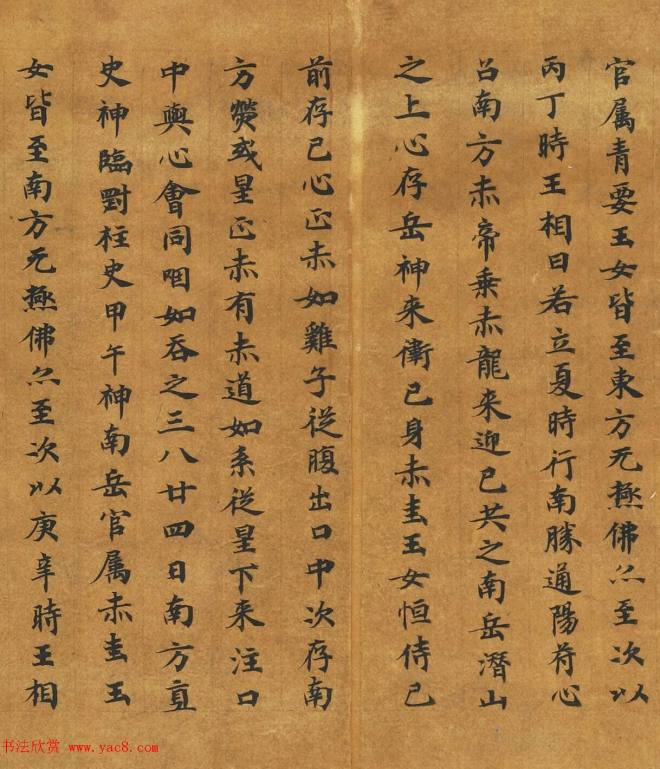 官属青要玉女皆至東方无極佛亦至次以
丙丁時王相日若立夏時行南勝通陽符心
召南方赤帝乗赤龍来迎已共之南岳潛山
之上心存岳神来衛已身赤圭玉女恒侍已
前存已心正赤如雞子従腹出口中次存南
方熒或星正赤有赤道如系従星下来注口
中與心會同咽如吞之三八廿四日南方直
史神臨對柱史甲午神南岳官属赤圭玉
女皆至南方无極佛亦至次以庚辛時王相
书法欣赏 www.yac8.com